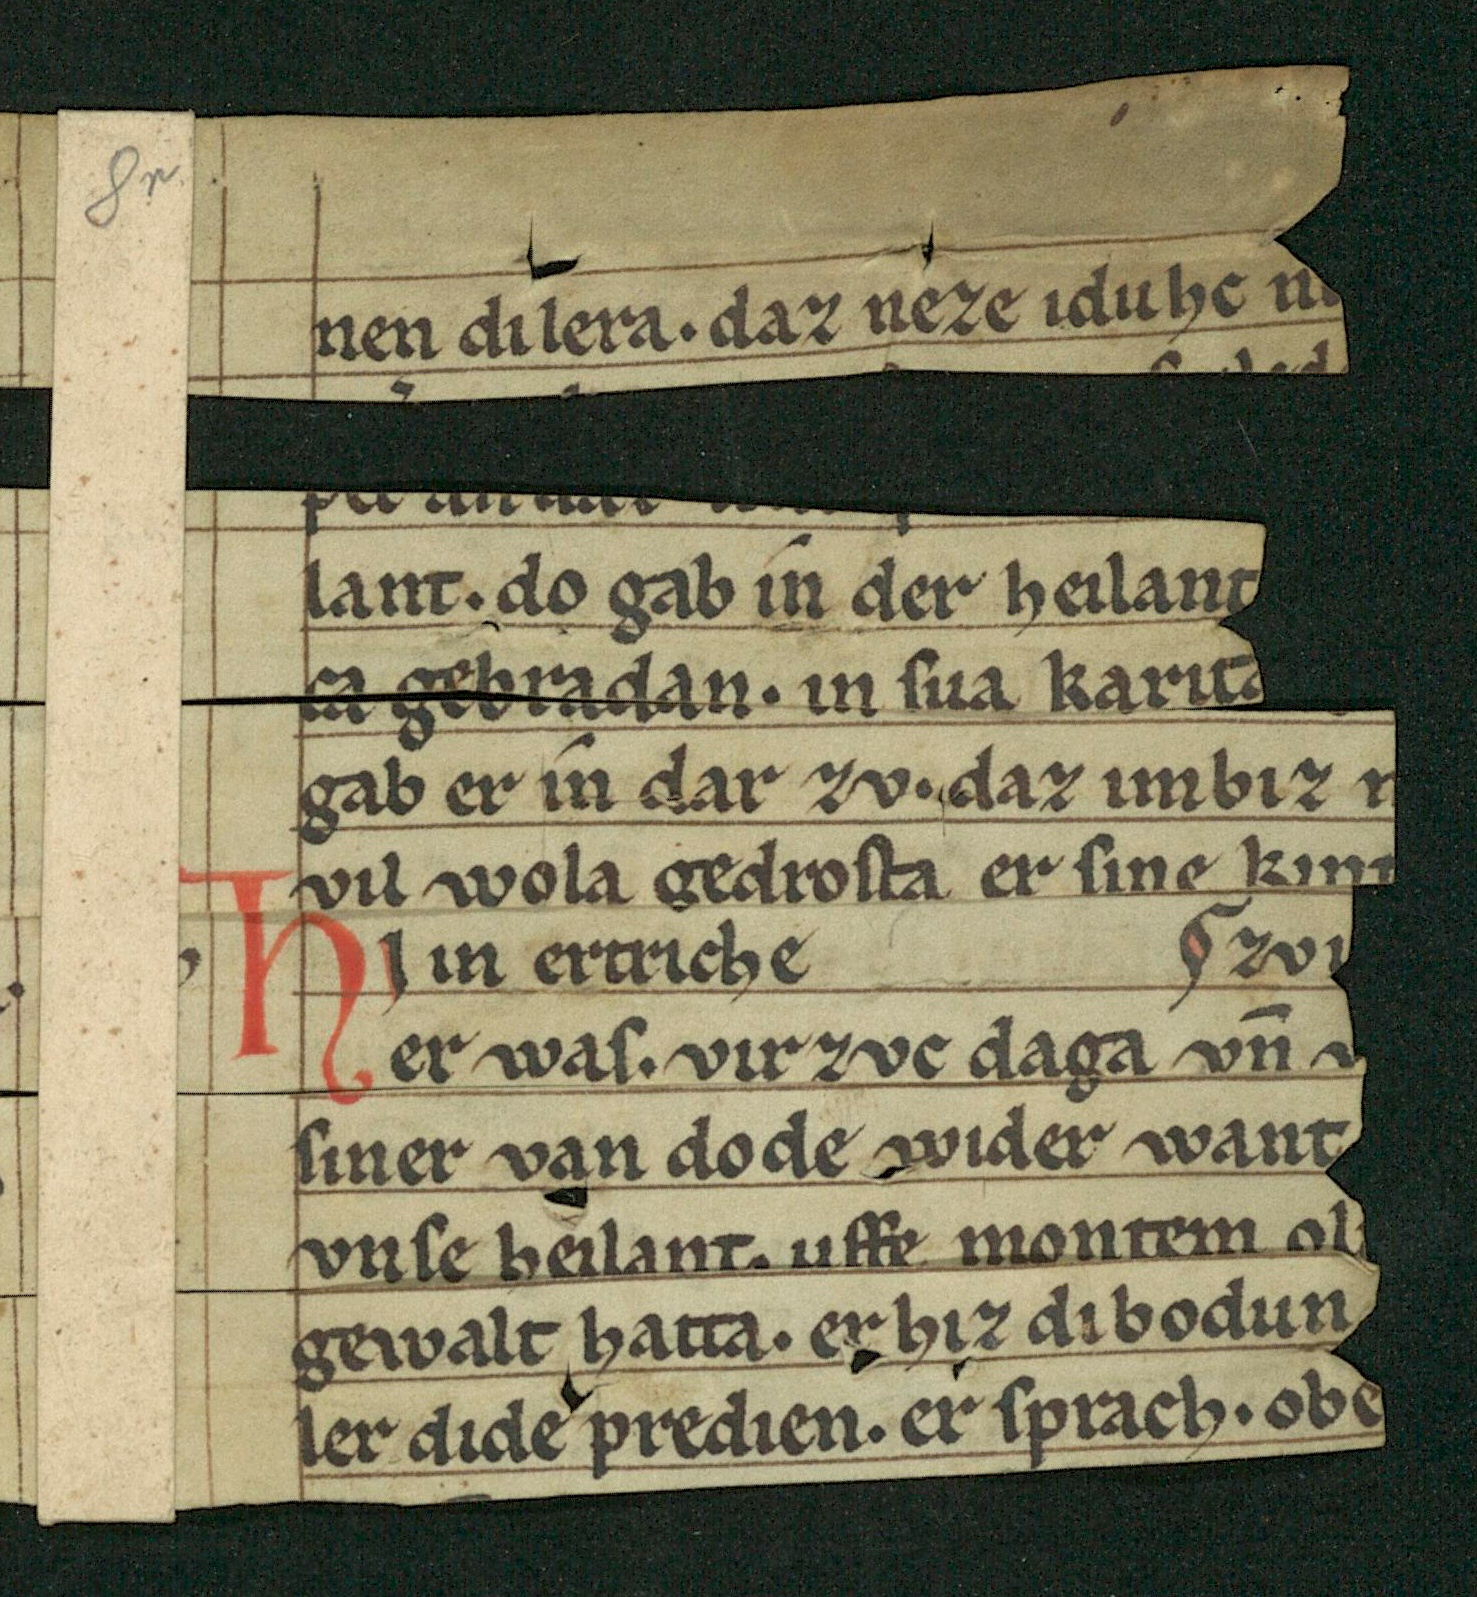 8r
nen dilera. daz neze iduhc
lant. do gab in̄ der heilant
ca gebradan. in sua karita
gab er in̄ dar zv. daz imbiz
vil wola gedrosta er sine
N
l in ertriche ¶ zvi
er was. vir zvc daga vn̄
siner van dode wider want
vnse heilant. uffe montem ol
gewalt hatta. er hiz di bodun
ler dide predien. er sprach. obe